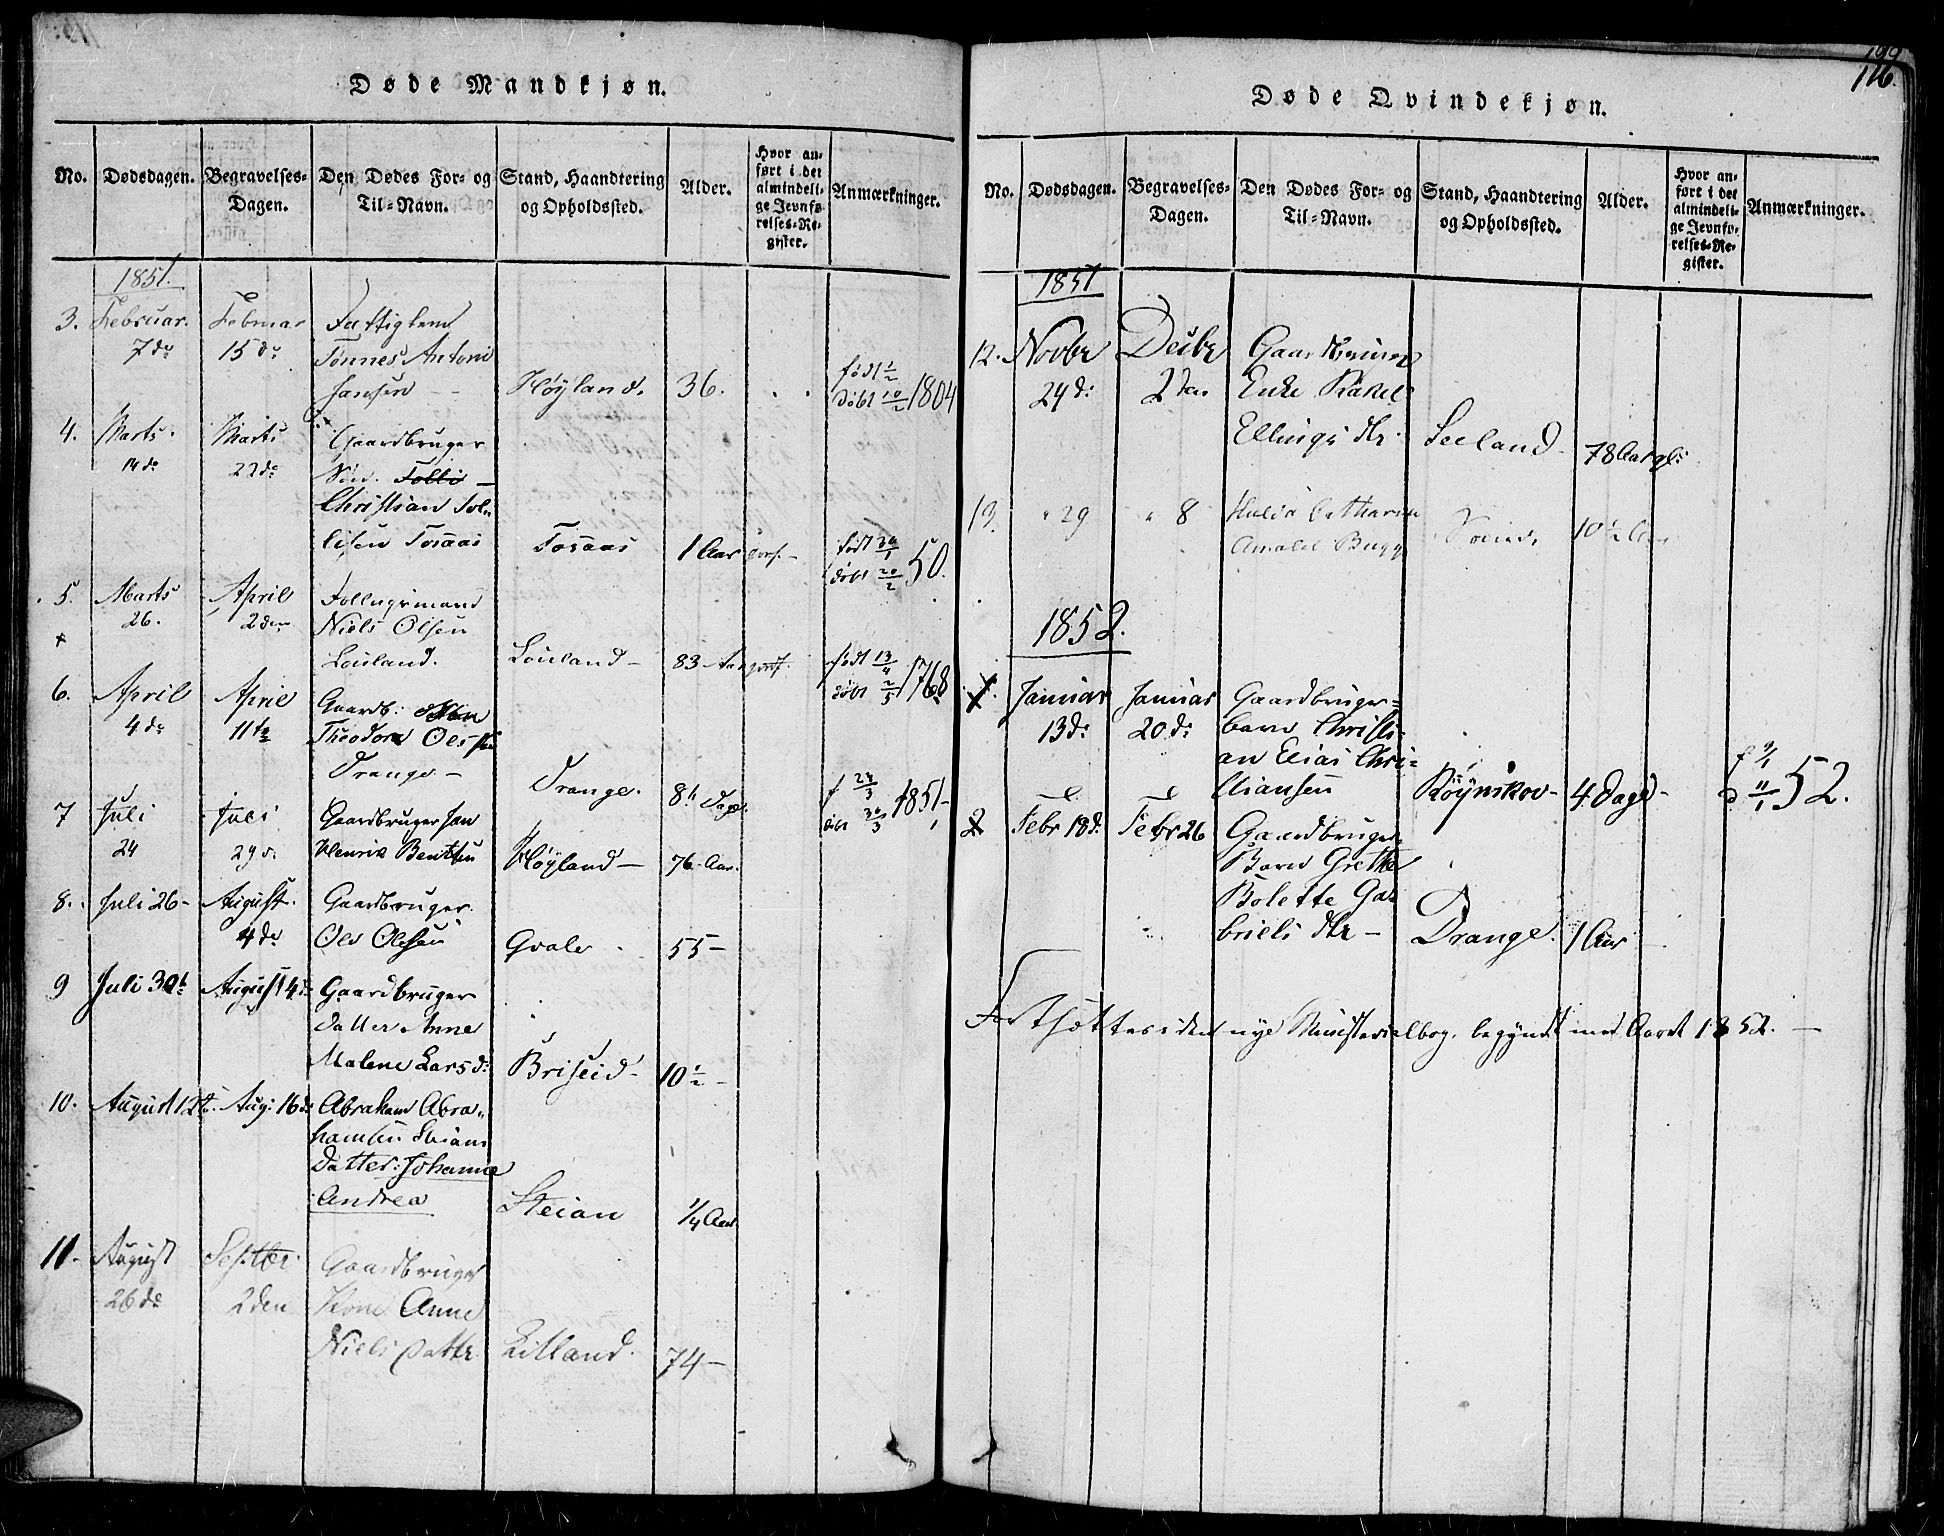 Døde Mandkjøn.
No. Dødsdagen. Begravelses-Dagen. Den Dødes For- og Til-Navn. Stand, Haandtering og Opholdssted. Alder. Hvor anført i det almindelige Jevnførelses-Register. Anmærkninger.
1851.
3. Februar. Februar Fattiglem
7de 15de Tønnes Antoni
Jansen - Høyland. 36. født 1/2 døbt 10/2 1804
4. Marts. Marts Gaardbruger
14de 22de Søn. Tolli -
Christian Tol-
lisen Tosaas Tosaas 1 Aar født 30/1 døbt 20/2 50.
5. Marts April
26. 2den Niels Olsen
Louland. Louland - 83 Aar født 13/4 døbt 2/5 1768
6. April April Gaardb:
4de 11te Theodor Olssen
Drange - Drange. 8 Dage. f 24/3 døbt 30/3 1851-
7 Juli Juli Gaardbruger Jan
24 29d. Henrik Bentsen Høyland - 76 Aar.
8. Juli 26- August. Gaardbruger
4de Ole Olesen Gvale 55-
9 Juli 30te August 4de Gaardbruger
datter Anne
Malene Larsd: Briseid - 10 1/2 -
10. August 12te. Aug: 16de Abraham Abra-
hamsen Steians
datter: Johanne
Andrea Steian 1/4 Aar
11- August Septbr Gaardbruger
26de 2den Kone Anne
Niels Dattr. Litland. 74-
199
116.
Døde Qvindekjøn.
No. Dødsdagen. Begravelses-Dagen. Den Dødes For- og Til-Navn. Stand, Haandtering og Opholdssted. Alder. Hvor anført i det almindelige Jevnførelses-Register. Anmærkninger.
1851
12. Novbr Decbr Gaardbruger
24d: 2den Enke Rakel
Ellings dtr. Seeland - 78 Aar gl:
13. " 29 " 8 Catharina
10 1/2 Aar
1852.
1. Januar Januar Gaardbruger-
13d: 20d: barn Christi-
an Elias Chri-
stiansen Røÿnskov- 4 Dage - f 9/1 d 11/1 52.
2 Febr 18d. Febr 26 Gaardbruger
Barn Grethe
Bolette Ga-
briels dtr - Drange. 1 Aar
Fortsættes i den nye Ministerialbog, begyndt med Aaret 1852. -